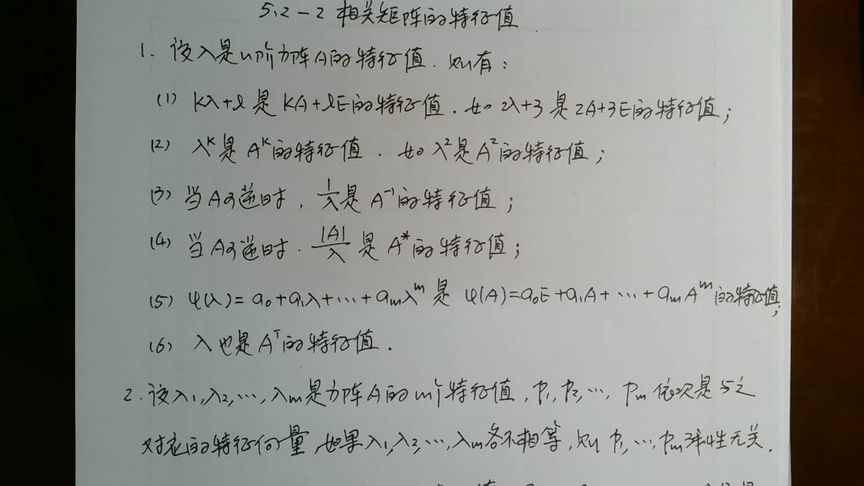 5.2-2 相关矩阵的特征值
1. 设λ是n阶方阵A的特征值.则有:
(1) kλ+l 是 kA+lE的特征值.如 2λ+3 是 2A+3E的特征值;
(2) λᵏ是 Aᵏ的特征值.如 λ²是A²的特征值;
(3) 当A可逆时, 1/λ是 A⁻¹的特征值;
(4) 当A可逆时. |A|/λ 是 A*的特征值;
(5) φ(λ)=a₀+a₁λ+⋯+aₘλᵐ 是 φ(A)=a₀E+a₁A+⋯+aₘAᵐ的特征值;
(6) λ也是Aᵀ的特征值.
2. 设λ₁,λ₂,⋯,λₘ是方阵A的m个特征值, P₁,P₂,⋯, Pₘ 依次是与之
对应的特征向量,如果λ₁,λ₂,⋯,λₘ各不相等,则 P₁,⋯,Pₘ线性无关.